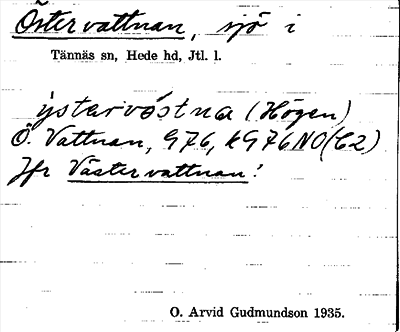 Östervattnan, sjö i
Tännäs sn, Hede hd, Jtl. l.
ýstarvóstna (Högen)
Ö. Vattnan, G76, kG76NO(C2)
Jfr Västervattnan!
O. Arvid Gudmundson 1935.